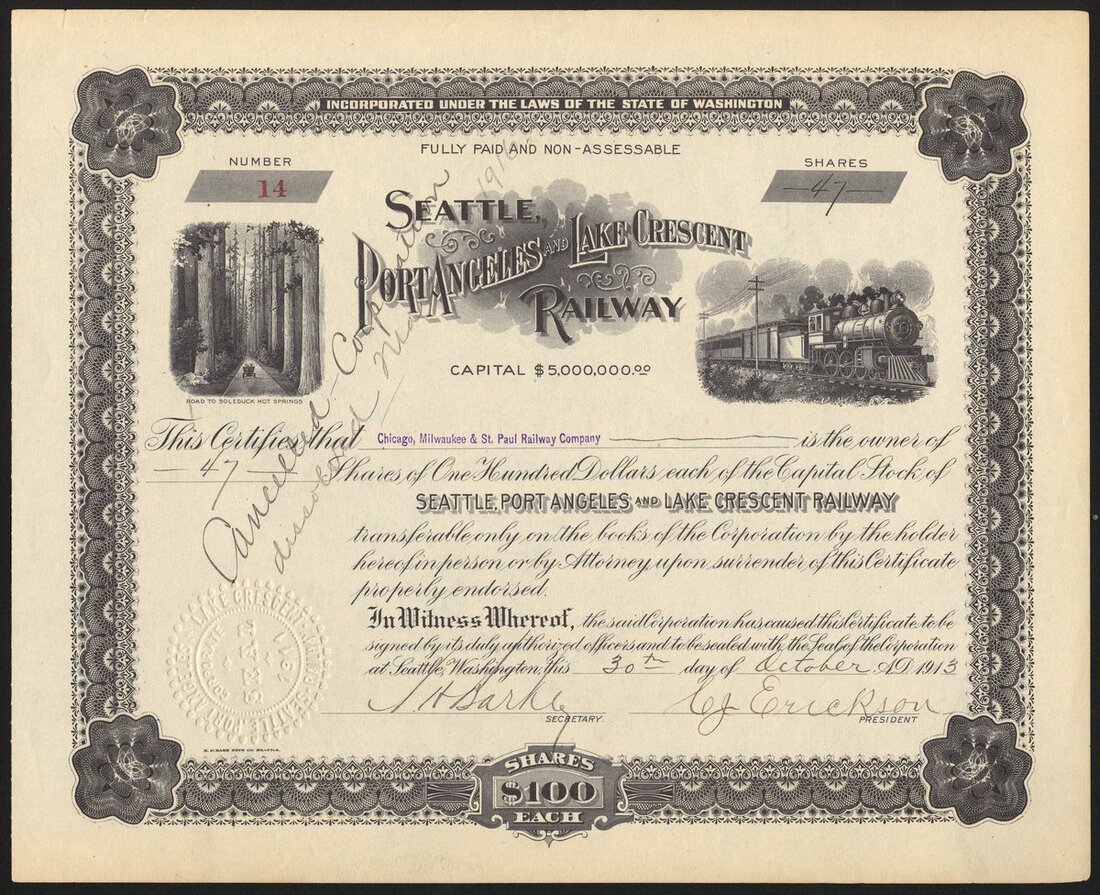 INCORPORATED UNDER THE LAWS OF THE STATE OF WASHINGTON
FULLY PAID AND NON-ASSESSABLE
NUMBER
14
SHARES
—47—
SEATTLE,
PORT ANGELES AND LAKE CRESCENT
RAILWAY
CAPITAL $5,000,000.00
ROAD TO SOLEDUCK HOT SPRINGS
This Certifies that Chicago, Milwaukee & St. Paul Railway Company is the owner of
—47— Shares of One Hundred Dollars each of the Capital Stock of
SEATTLE, PORT ANGELES AND LAKE CRESCENT RAILWAY
transferable only on the books of the Corporation by the holder
hereof in person or by Attorney upon surrender of this Certificate
properly endorsed.
In Witness Whereof, the said Corporation has caused this Certificate to be
signed by its duly authorized officers and to be sealed with the Seal of the Corporation
at Seattle, Washington, this 30th day of October A.D. 1913
C J Erickson
SECRETARY.
PRESIDENT
Cancelled - Corporation
dissolved 1916
SEATTLE PORT ANGELES LAKE CRESCENT RAILWAY
CORPORATE
SEAL
1911
SHARES
$100
EACH